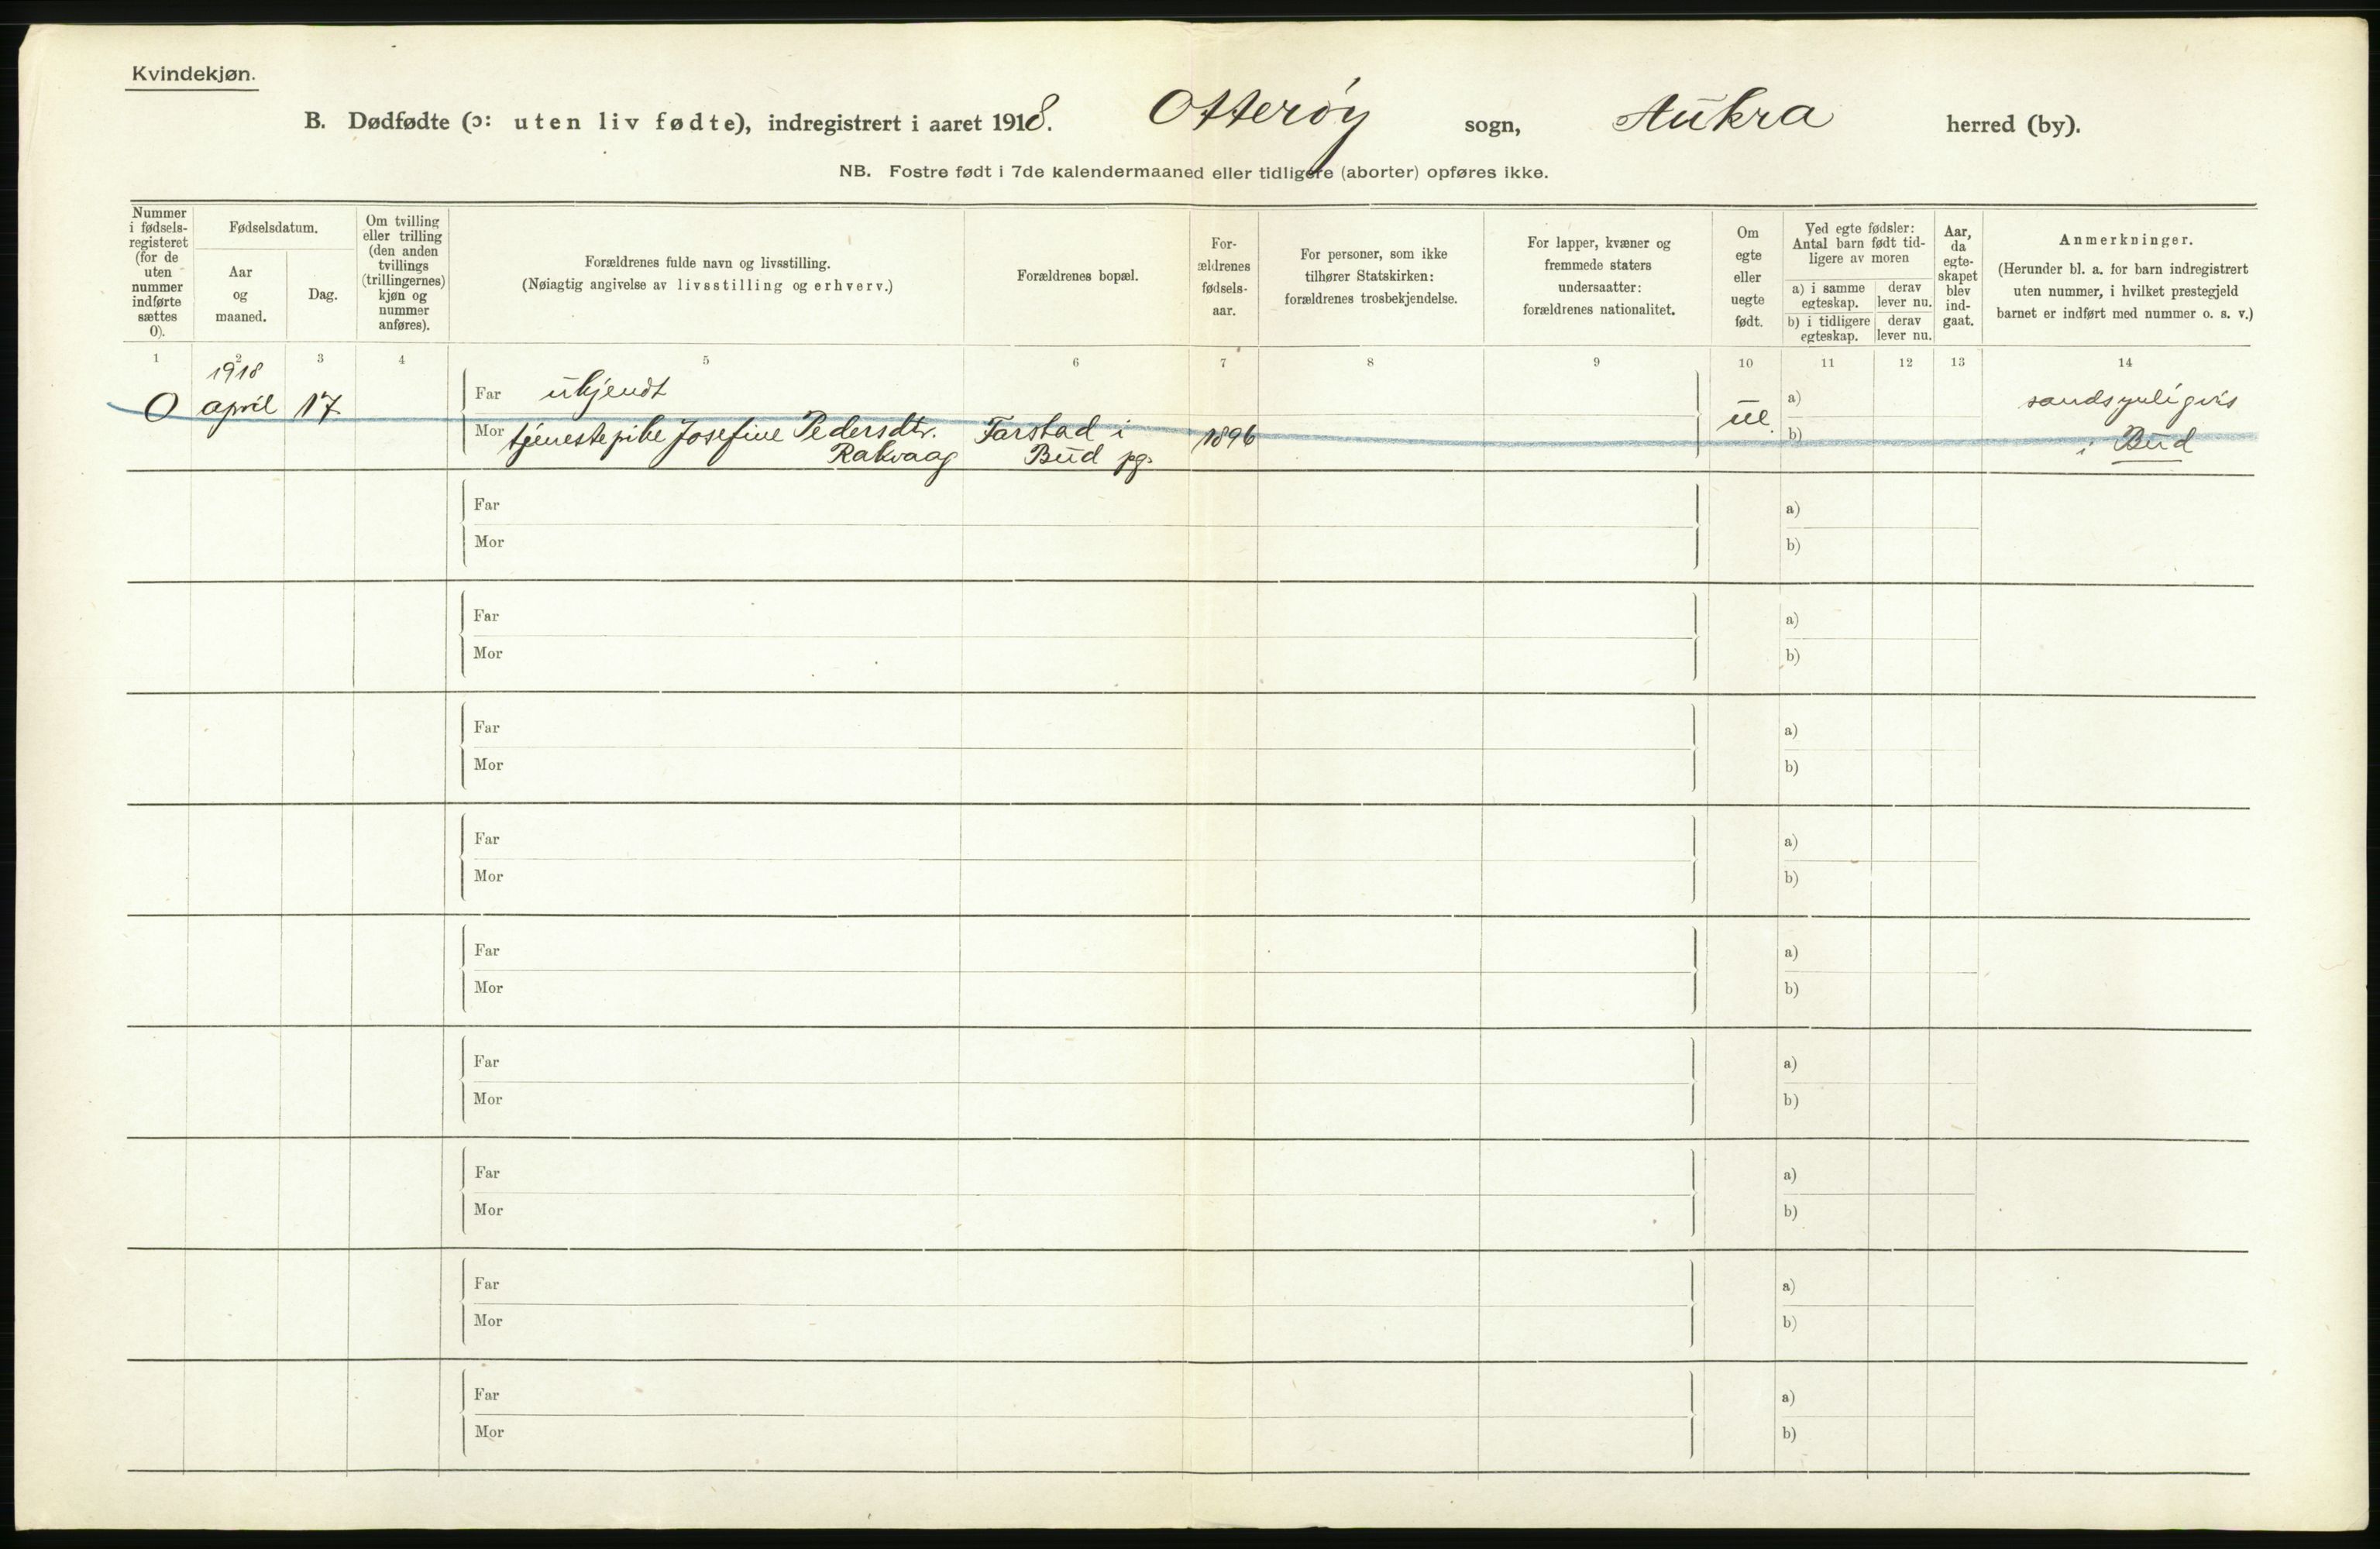 Kvindekjøn.
B. Dødfødte (ɔ: uten liv fødte), indregistrert i aaret 1918. Otterøy sogn, Aukra herred (by).
NB. Fostre født i 7de kalendermaaned eller tidligere (aborter) opføres ikke.
Nummer
i fødsels-
registeret
(for de
uten
nummer
indførte
sættes
0).
Fødselsdatum.
Aar
og
maaned.
Dag.
Om tvilling
eller trilling
(den anden
tvillings
(trillingernes)
kjøn og
nummer
anføres).
Forældrenes fulde navn og livsstilling.
(Nøiagtig angivelse av livsstilling og erhverv.)
Forældrenes bopæl.
For-
ældrenes
fødsels-
aar.
For personer, som ikke
tilhører Statskirken:
forældrenes trosbekjendelse.
For lapper, kvæner og
fremmede staters
undersaatter:
forældrenes nationalitet.
Om
egte
eller
uegte
født.
Ved egte fødsler:
Antal barn født tid-
ligere av moren
a) i samme
egteskap.
derav
lever nu.
b) i tidligere
egteskap.
derav
lever nu.
Aar,
da
egte-
skapet
blev
ind-
gaat.
Anmerkninger.
(Herunder bl. a. for barn indregistrert
uten nummer, i hvilket prestegjeld
barnet er indført med nummer o. s. v.)
1 2 3 4 5 6 7 8 9 10 11 12 13 14
1918
0 april 17
Far ukjendt
Mor tjenestepike Josefine Pedersdtr.
Rakvaag
Farstad i
Bud pg.
1896
ue.
a)
b)
sandsynligvis
i Bud
Far
Mor
a)
b)
Far
Mor
a)
b)
Far
Mor
a)
b)
Far
Mor
a)
b)
Far
Mor
a)
b)
Far
Mor
a)
b)
Far
Mor
a)
b)
Far
Mor
a)
b)
Far
Mor
a)
b)